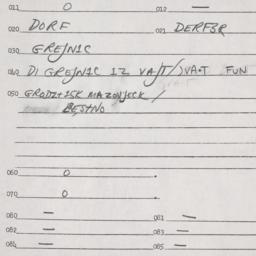 011 O 012 —
020 DORF 021 DERFER
030 GREJNIC
040 DI GREJNIC IZ VAJT/JVAT FUN
050 GRODZISK MAZOVJECK /
BEJSNO
060 O
070 O
080 — 081 —
082 — 083 —
084 — 085 —